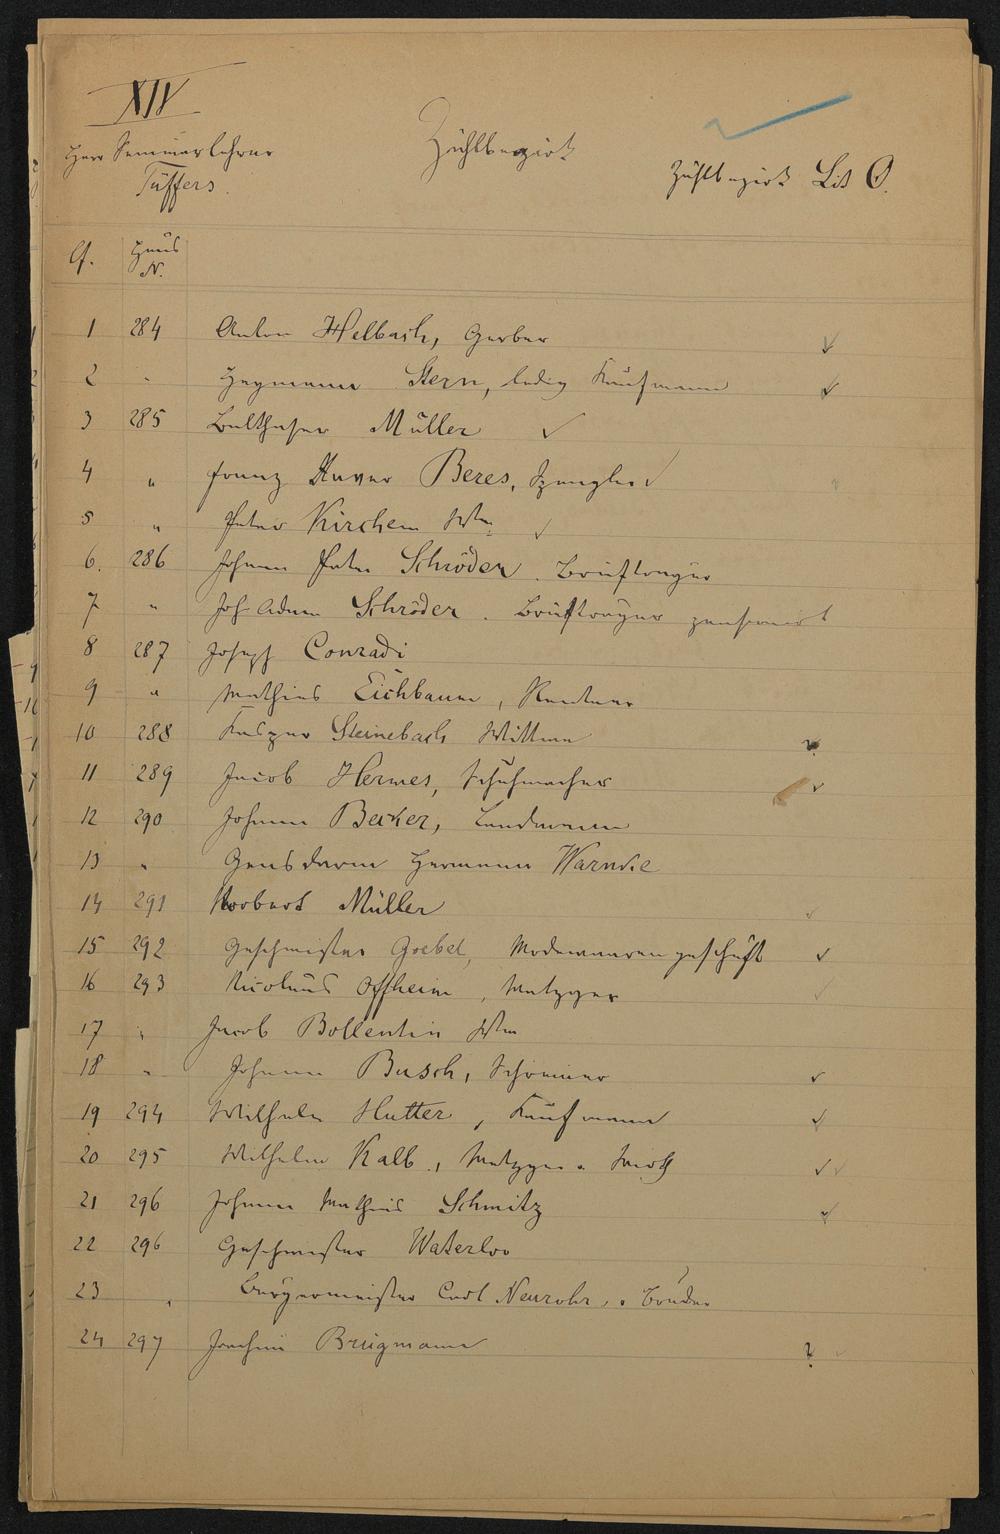 XIV
Herr Seminarlehrer
Tüffers.
Zählbezirk
Zählbezirk Lit O.
Haus
N.
1 284 Anton Helbach, Gerber
2 " Heymann Stern, ledig Kaufmann
3 285 Balthasar Müller
4 " Franz Xaver Beres, Spengler
5 " Peter Kirchem Wtw
6. 286 Johann Peter Schröder. Briefträger
7 " Joh Adam Schröder. Briefträger pensionirt
8 287 Joseph Conradi
9 " Mathias Eichbaum, Rentner
10 288 Kaspar Steinebach Wittwe
11 289 Jacob Hermes, Schuhmacher
12 290 Johann Becker, Landmann
13 " Gensdarm Hermann Warncke
14 291 Norbert Müller
15 292 Geschwister Goebel, Modewaarengeschäft
16 293 Nicolaus Offheim, Metzger
17 " Jacob Bollentin Wtw
18 " Johann Busch, Schreiner
19 294 Wilhelm Hutter, Kaufmann
20 295 Wilhelm Kalb, Metzger u Wirth
21 296 Johann Mathias Schmitz
22 296 Geschwister Waterloo
23 " Bürgermeister Carl Neurohr, u Bruder
24 297 Joachim Brügmann ?